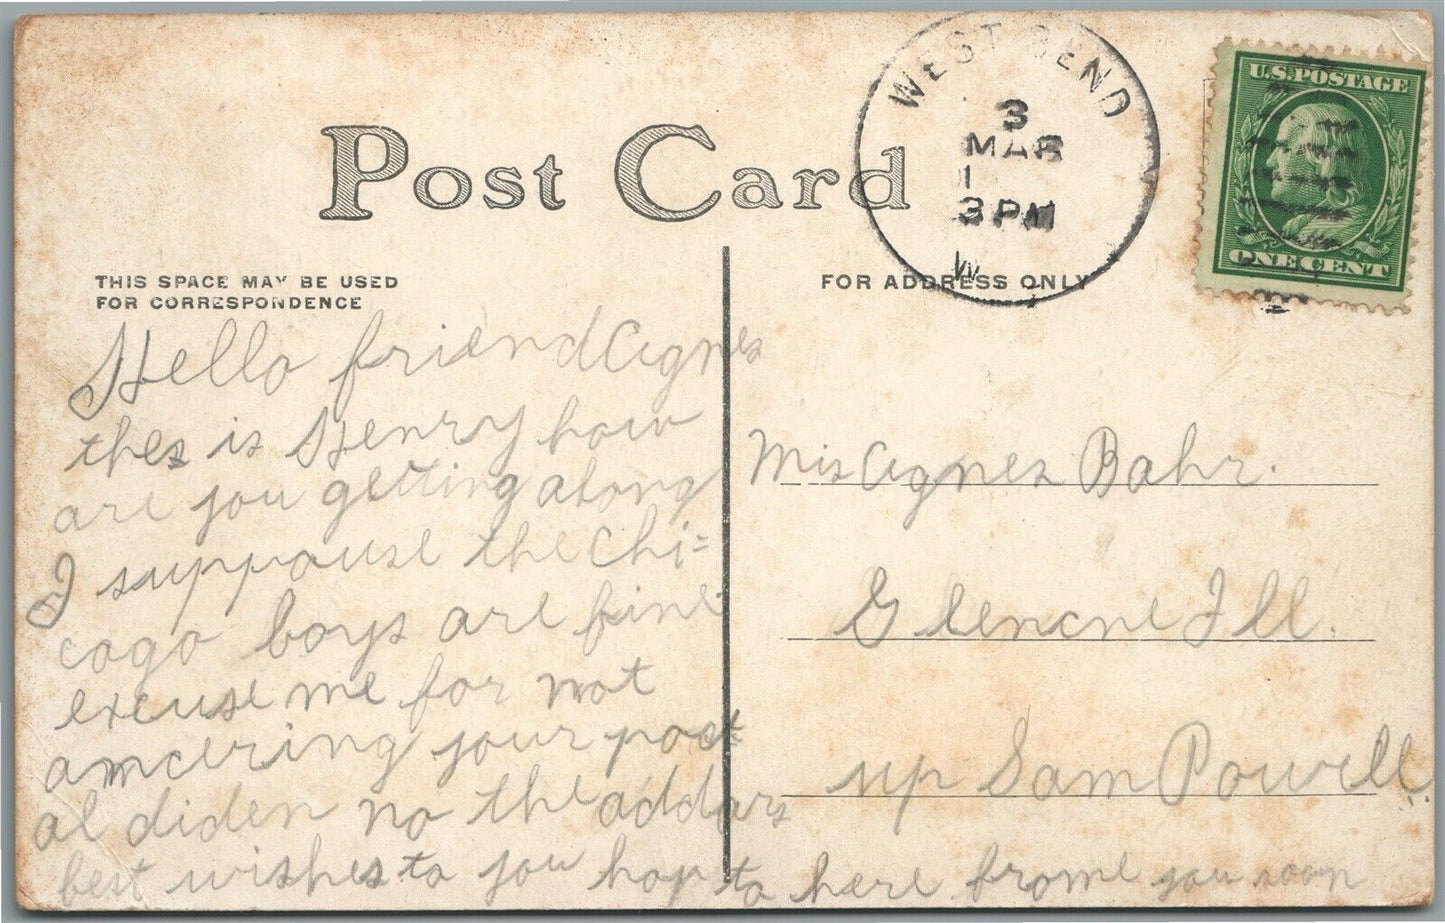 Post Card
WEST BEND
3
MAR
1
3 PM
W
U.S. POSTAGE
ONE CENT
THIS SPACE MAY BE USED
FOR CORRESPONDENCE
FOR ADDRESS ONLY
Hello friend Agnes
thes is Henry how
are you getting along
I suppouse the Chi=
cogo boys are fine
excuse me for not
amcering your post
al diden no the addars
best wishes to you hop to here frome you soon
Mis Agnes Bahr.
Glencne Ill.
up Sam Powell.